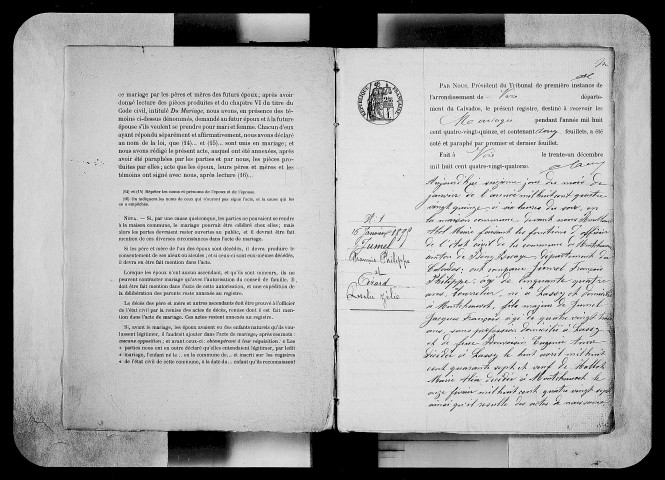 ce mariage par les pères et mères des futurs époux; après avoir
donné lecture des pièces produites et du chapitre VI du titre du
Code civil, intitulé Du Mariage, nous avons, en présence des té-
moins ci-dessus dénommés, demandé au futur époux et à la future
épouse s'ils veulent se prendre pour mari et femme. Chacun d'eux
ayant répondu séparément et affirmativement, nous avons déclaré
au nom de la loi, que (14)... et (15)... sont unis en mariage; et
nous avons rédigé le présent acte, auquel ont été annexées, après
avoir été paraphées par les parties et par nous, les pièces pro-
duites par elles; acte que les époux, leurs pères et mères et les
témoins ont signé avec nous, après lecture (16)...
(14) et (15) Répéter les noms et prénoms de l'époux et de l'épouse.
(16) On indiquera les noms de ceux qui n'auront pas signé l'acte, et la cause qui les
en a empêchés.
NOTA. — Si, par une cause quelconque, les parties ne pouvaient se rendre
à la maison commune, le mariage pourrait être célébré chez elles; mais
alors les portes devraient rester ouvertes au public, et il devrait être fait
mention de ces diverses circonstances dans l'acte de mariage.
Si les père et mère de l'un des époux sont décédés, il devra produire le
consentement de ses aïeux ou aïeules; et si ceux-ci sont eux-mêmes décédés,
il devra en être fait mention dans l'acte.
Lorsque les époux n'ont aucun ascendant, et qu'ils sont mineurs, ils ne
peuvent contracter mariage qu'avec l'autorisation du conseil de famille. Il
doit être fait mention dans l'acte de cette autorisation, et une expédition de
la délibération des parents reste annexée au registre.
Le décès des père et mère et autres ascendants doit être prouvé à l'officier
de l'état civil par la remise des actes de décès, remise dont il est fait men-
tion dans l'acte de mariage. Ces actes restent annexés au registre.
Si, avant le mariage, les époux avaient eu des enfants naturels qu'ils vou-
lussent légitimer, il faudrait ajouter dans l'acte de mariage, après ces mots:
aucune opposition; et avant ceux-ci: obtempérant à leur réquisition: « Les
« parties nous ont en outre déclaré qu'elles entendaient légitimer, par ledit
« mariage, l'enfant né le... en la commune de... et inscrit sur les registres
« de l'état civil de cette commune, à la date du... enfant qu'ils reconnaissent
RÉPUBLIQUE FRANÇAISE
PAR NOUS, Président du Tribunal de première instance de
l'arrondissement de Vire départe-
ment du Calvados, le présent registre, destiné à recevoir les
Mariages pendant l'année mil huit
cent quatre-vingt-quinze, et contenant feuillets, a été
coté et paraphé par premier et dernier feuillet.
FAIT à Vire le trente-un décembre
mil huit cent quatre-vingt-quatorze.
N° 1
15 Janvier 1895
Jumel
François Philippe
et
Gérard
Rosalie Zélie
Aujourd'hui quinze jour du mois de
janvier de l'année mil huit cent quatre
vingt quinze, à six heures du soir, en
la maison commune devant nous
faisant les fonctions d'officier
de l'état civil de la commune de Montchauvet
canton de département du
Calvados, ont comparu Jumel François
Philippe, âgé de cinquante quatre
ans, né à Lassy et domicilié
à Montchauvet, fils majeur de Jumel
Jacques François âgé de quatre vingt
ans, sans profession domicilié à Lassy
et de feue Eugénie Anne
décédée à Lassy le huit août mil huit
cent quarante sept, et veuf de
Marie décédée à Montchauvet le
onze février mil huit cent quatre vingt sept
ainsi qu'il résulte des actes de naissance